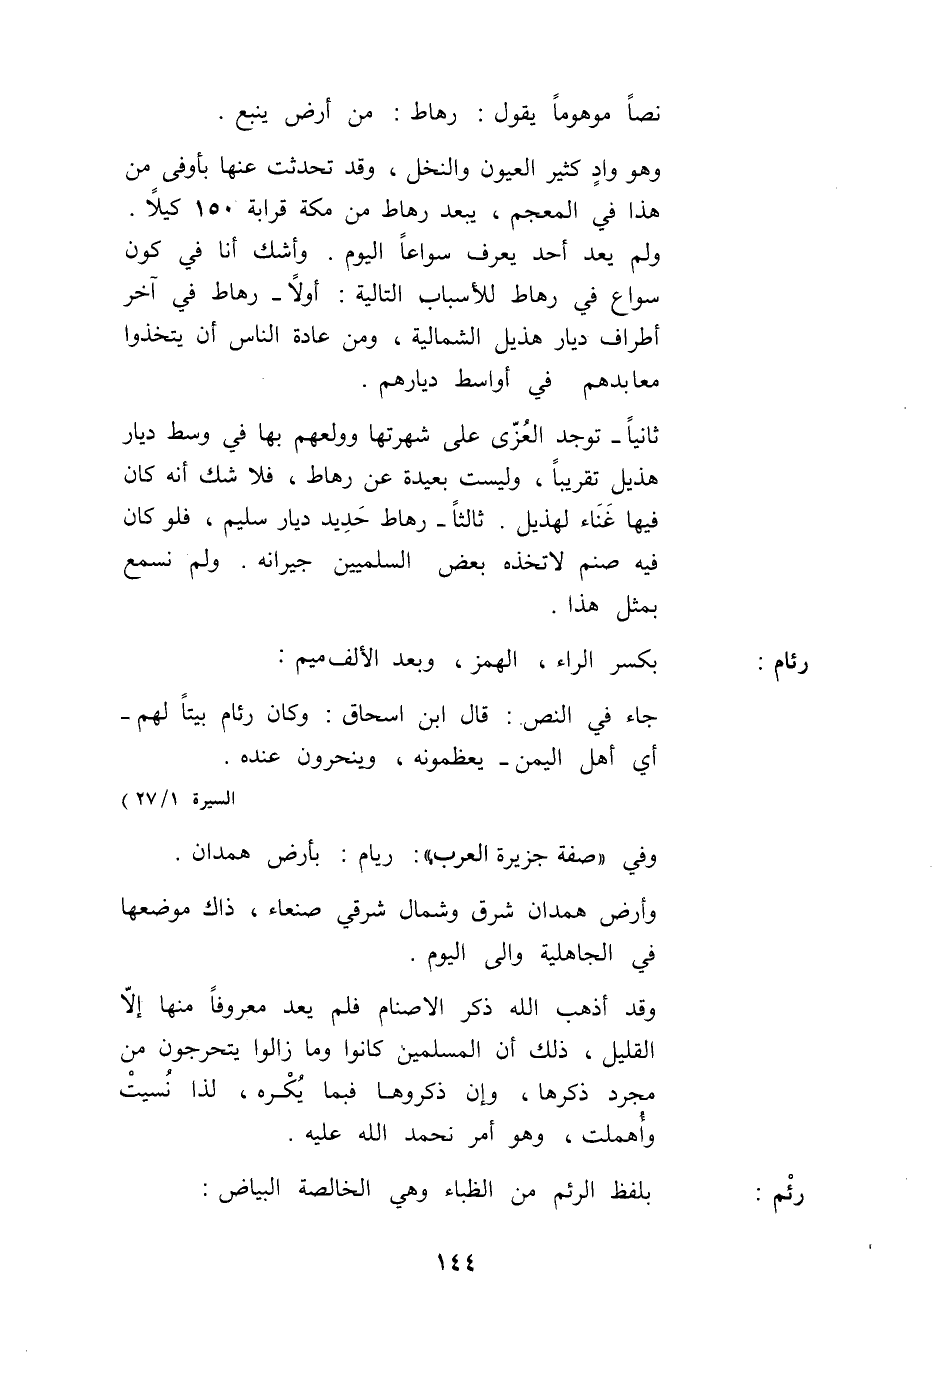 نصاً موهوماً يقول : رهاط : من أرض ينبع .
وهو وادٍ كثير العيون والنخل ، وقد تحدثت عنها بأوفى من
هذا في المعجم ، يبعد رهاط من مكة قرابة ١٥٠ كيلاً .
ولم يعد أحد يعرف سواعاً اليوم . وأشك أنا في كون
سواع في رهاط للأسباب التالية : أولاً - رهاط في آخر
أطراف ديار هذيل الشمالية ، ومن عادة الناس أن يتخذوا
معابدهم في أواسط ديارهم .
ثانياً - توجد العُزّى على شهرتها وولعهم بها في وسط ديار
هذيل تقريباً ، وليست بعيدة عن رهاط ، فلا شك أنه كان
فيها غَنَاء لهذيل . ثالثاً - رهاط حَدِيد ديار سليم ، فلو كان
فيه صنم لاتخذه بعض السلميين جيرانه . ولم نسمع
بمثل هذا .
رئام : بكسر الراء ، الهمز ، وبعد الألف ميم :
جاء في النص : قال ابن اسحاق : وكان رئام بيتاً لهم -
أي أهل اليمن - يعظمونه ، وينحرون عنده .
السيرة ٢٧/١ )
وفي «صفة جزيرة العرب» : ريام : بأرض همدان .
وأرض همدان شرق وشمال شرقي صنعاء ، ذاك موضعها
في الجاهلية والى اليوم .
وقد أذهب الله ذكر الاصنام فلم يعد معروفاً منها إلاّ
القليل ، ذلك أن المسلمين كانوا وما زالوا يتحرجون من
مجرد ذكرها ، وإن ذكروها فبما يُكْره ، لذا نُسيتْ
وأُهملت ، وهو أمر نحمد الله عليه .
رئْم : بلفظ الرئم من الظباء وهي الخالصة البياض :
١٤٤